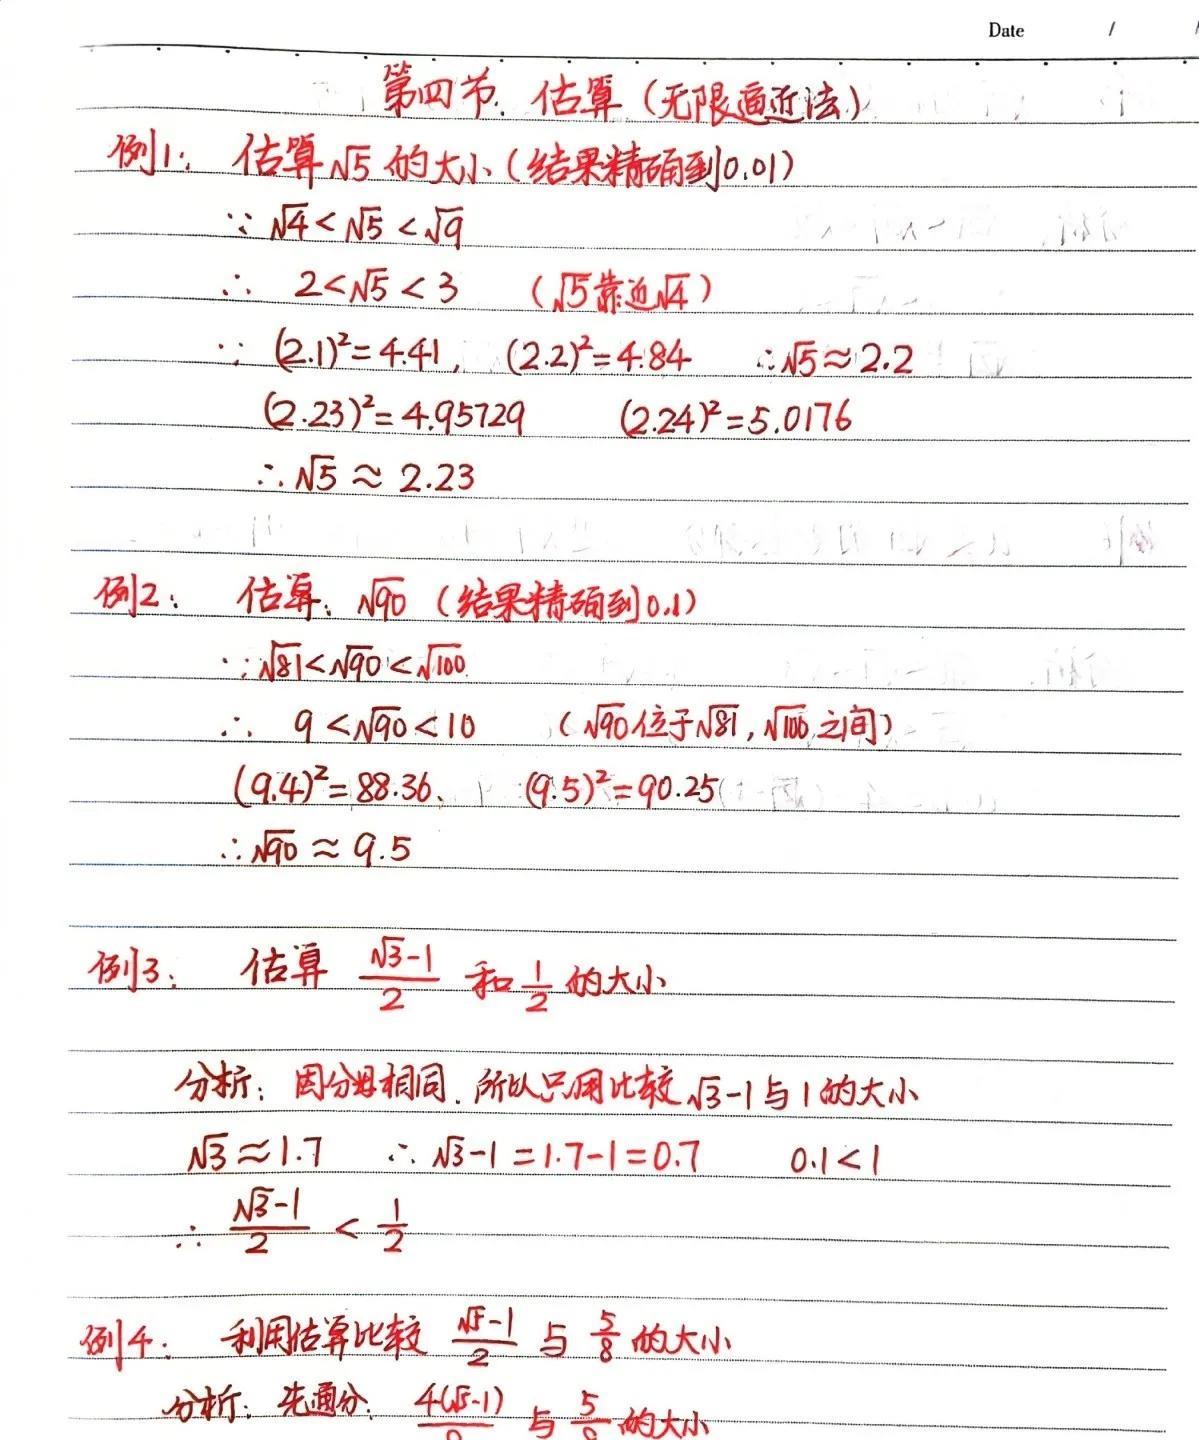 Date / /
第四节. 估算(无限逼近法)
例1: 估算√5 的大小(结果精确到0.01)
∵ √4<√5<√9
∴ 2<√5<3 (√5靠近√4)
∵ (2.1)²=4.41, (2.2)²=4.84 ∴√5≈2.2
(2.23)²=4.95729 (2.24)²=5.0176
∴√5≈2.23
例2: 估算: √90 (结果精确到0.1)
∵√81<√90<√100
∴ 9<√90<10 (√90位于√81,√100之间)
(9.4)²=88.36、 (9.5)²=90.25
∴√90≈9.5
例3: 估算 (√3-1)/2 和 1/2 的大小
分析: 因分母相同.所以只用比较√3-1与1的大小
√3≈1.7 ∴√3-1=1.7-1=0.7 0.1<1
∴ (√3-1)/2 < 1/2
例4: 利用估算比较 (√5-1)/2 与 5/8 的大小
分析: 先通分: 4(√5-1)/8 与 5/8 的大小